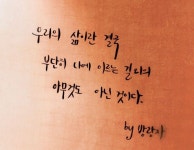 우리의 삶이란 결국
부단히 나에 이르는 길 너머
아무것도 아닌 것이다.
by 방랑자